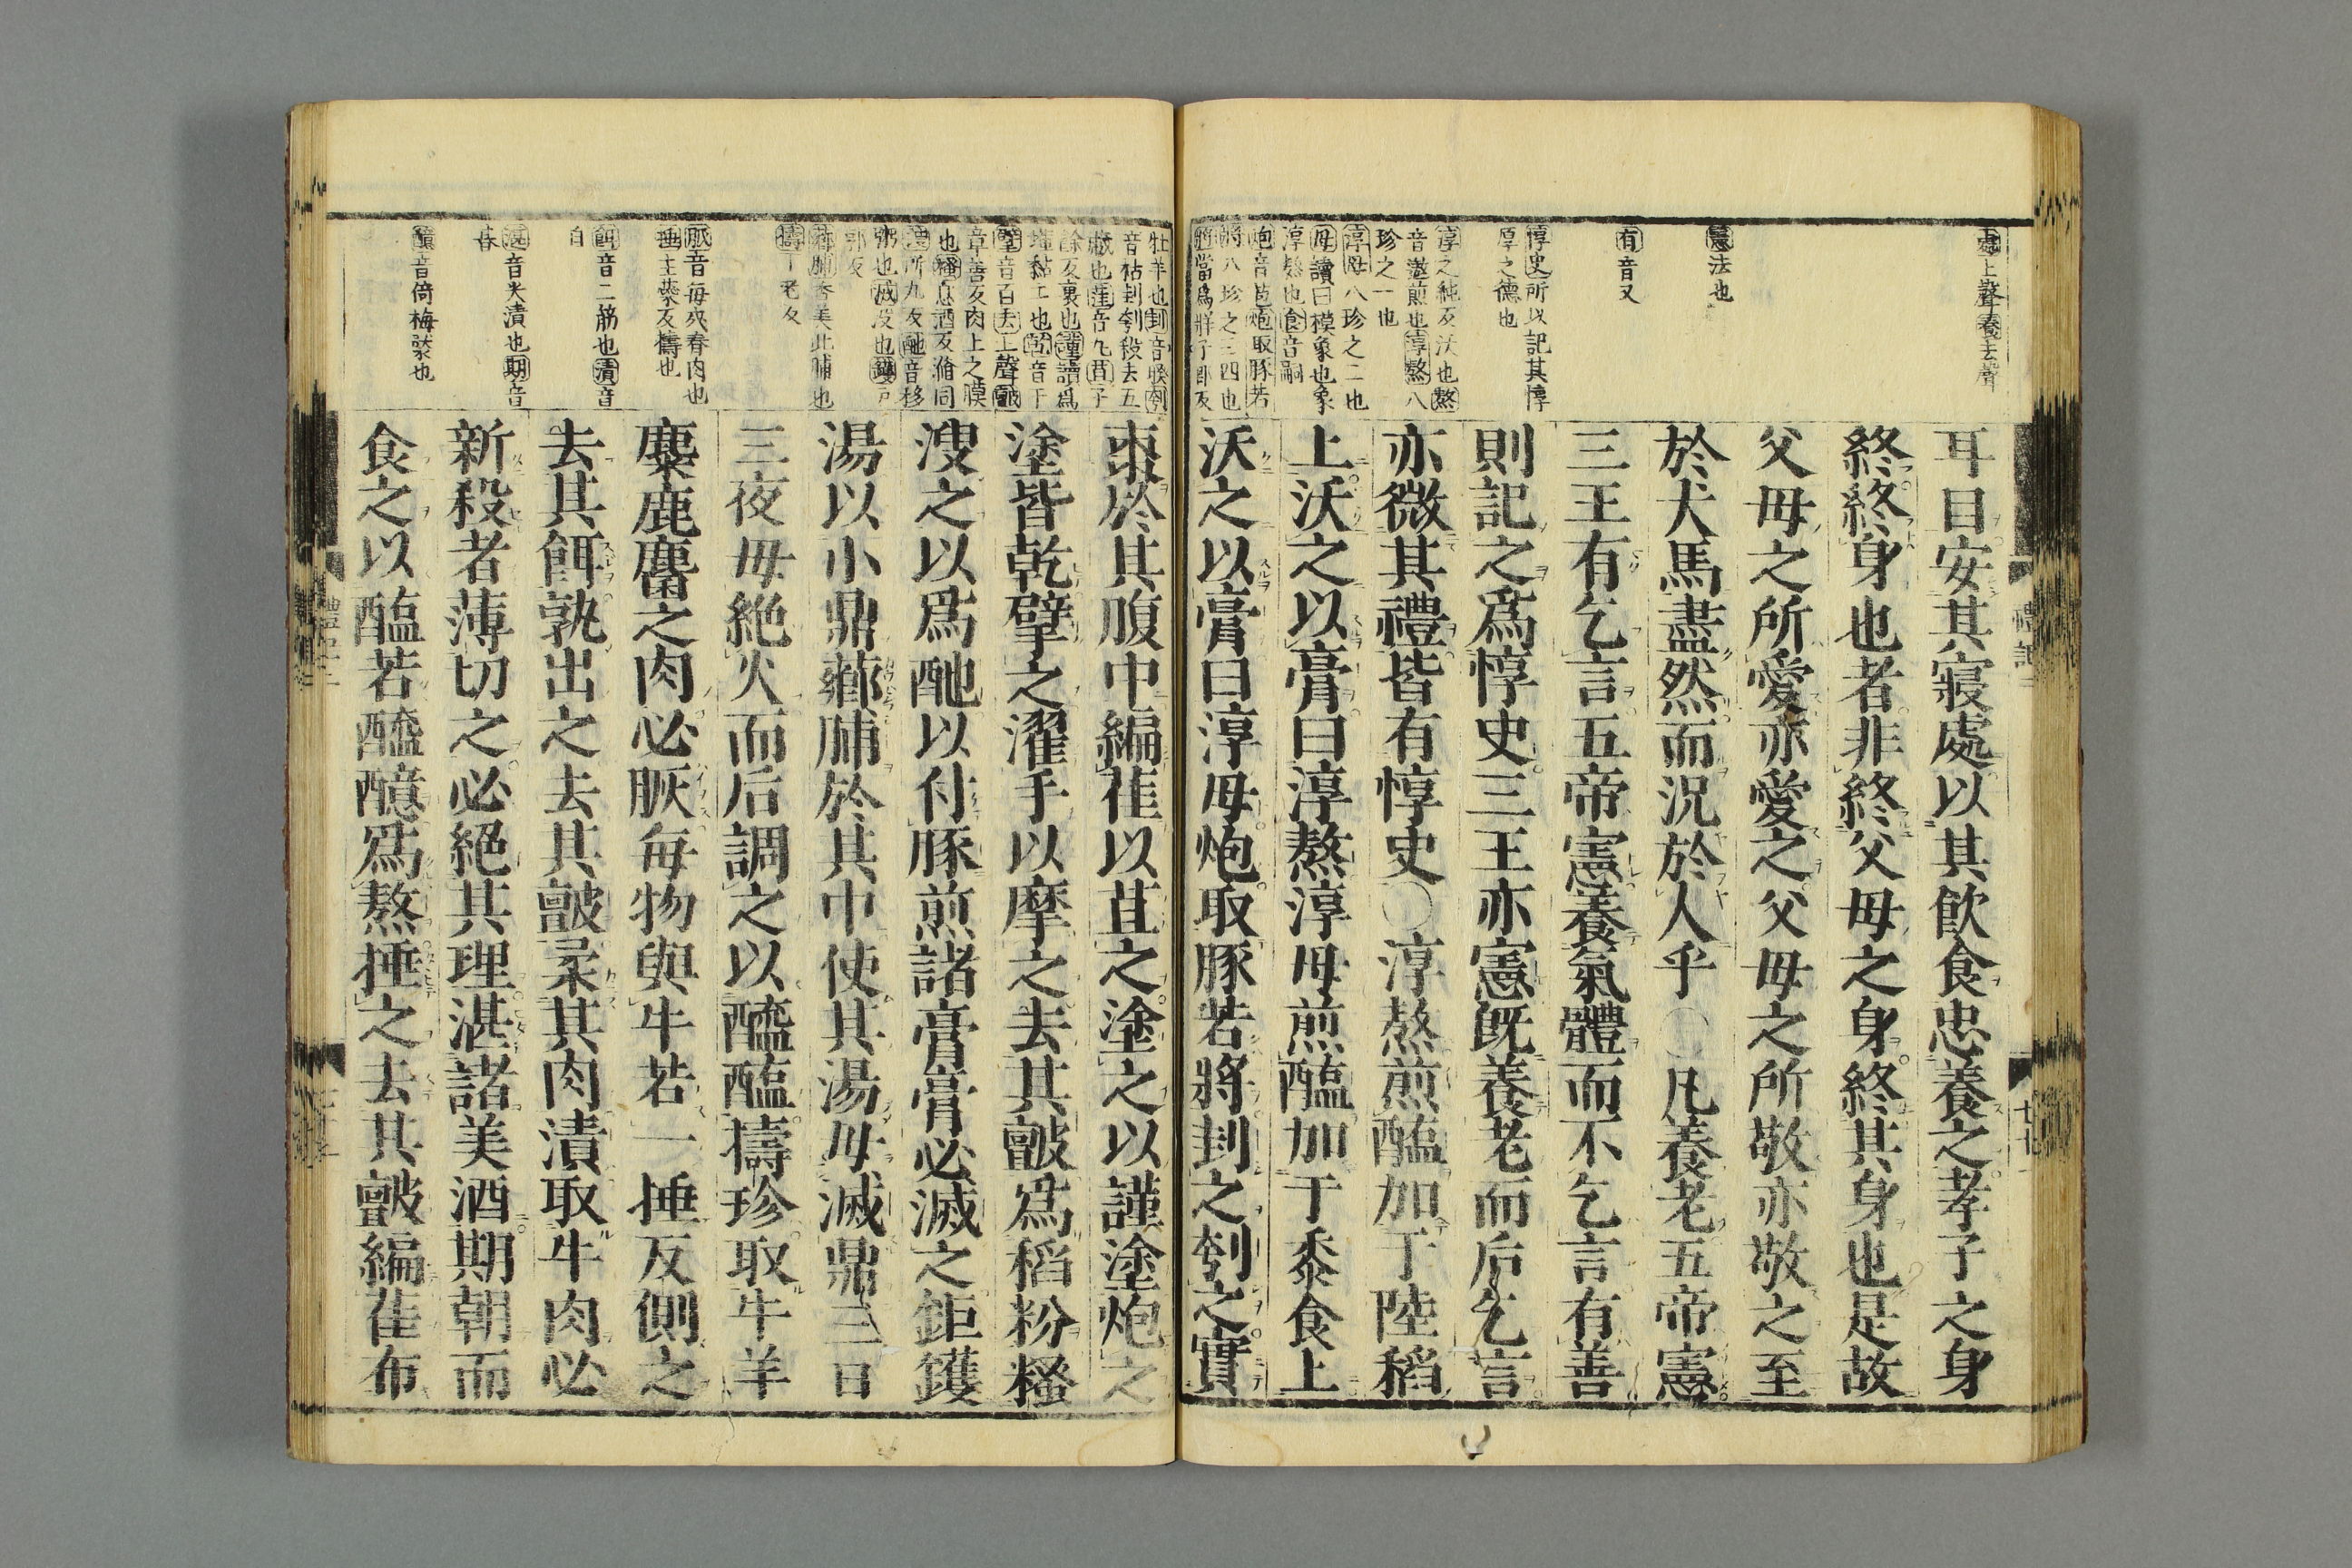 耳目安其寢處以其飮食忠養之孝子之身
終終身也者非終父母之身終其身也是故
父母之所愛亦愛之父母之所敬亦敬之至
於犬馬盡然而況於人乎○凡養老五帝憲
三王有乞言五帝憲養氣體而不乞言有善
則記之爲惇史三王亦憲既養老而后乞言
亦微其禮皆有惇史○淳熬煎醢加于陸稻
上沃之以膏曰淳熬淳母煎醢加于黍食上
沃之以膏曰淳母炮取豚若將刲之刳之實
樂上聲養去聲
憲法也
有音又
惇史所以記其惇
厚之德也
淳之純反沃也熬
音遨煎也淳熬八
珍之一也
淳母八珍之二也
母讀曰模象也象
淳熬也食音嗣
炮音庖炮取豚若
將八珍之三四也
將當爲牂子郎反
禮記二
七十七
棗於其腹中編萑以苴之塗之以謹塗炮之
塗皆乾擘之濯手以摩之去其皽爲稻粉糔
溲之以爲酏以付豚煎諸膏膏必滅之鉅鑊
湯以小鼎薌脯於其中使其湯毋滅鼎三日
三夜毋絶火而后調之以醯醢擣珍取牛羊
麋鹿麕之肉必脄每物與牛若一捶反側之
去其餌孰出之去其皽柔其肉漬取牛肉必
新殺者薄切之必絕其理湛諸美酒期朝而
食之以醢若醯醷爲熬捶之去其皽編萑布
牡羊也刲音睽刳
音枯刲刳殺去五
藏也萑音丸苴子
餘反裹也謹讀爲
墐黏土也乾音干
擘音百去上聲皽
章善反肉上之膜
也糔息酒反滫同
溲所九反酏音移
粥也滅沒也鑊戶
郭反
薌脯香美此脯也
擣丁老反
脄音每夾脊肉也
捶主橤反擣也
餌音二筋也漬音
自
湛音尖漬也期音
朞
醷音倚梅漿也